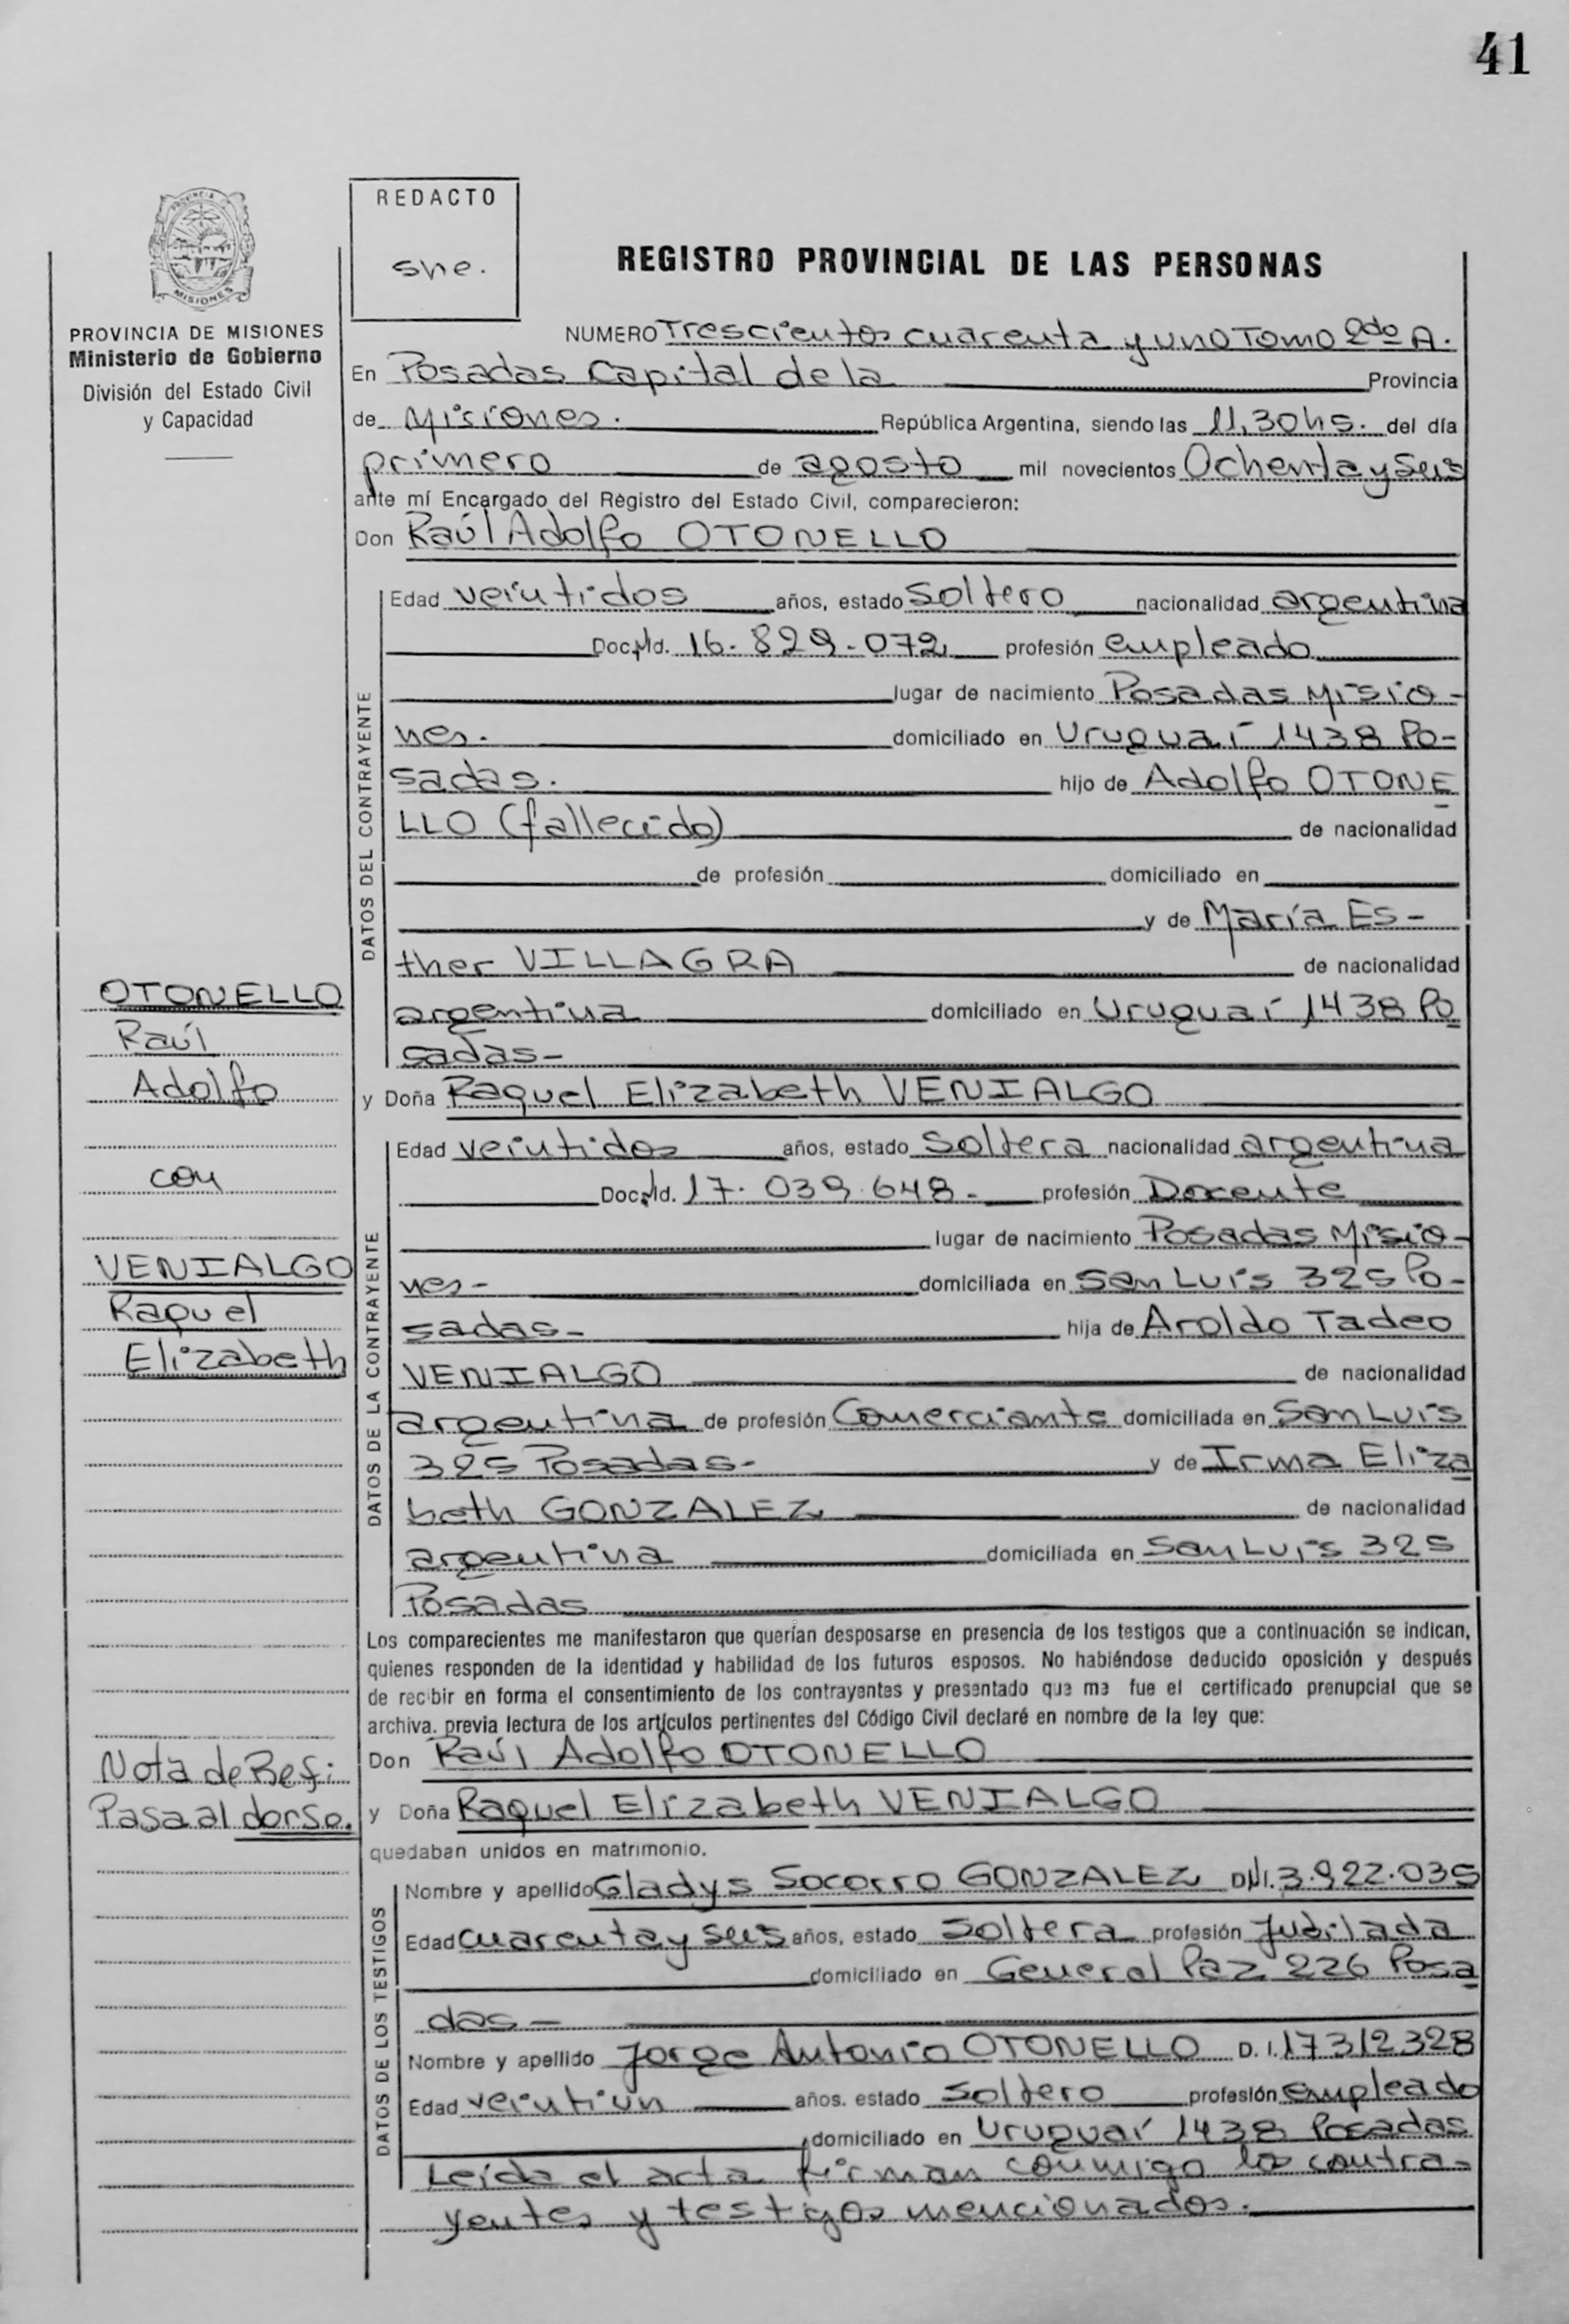 41
REDACTO
sne.
PROVINCIA
MISIONES
PROVINCIA DE MISIONES
Ministerio de Gobierno
División del Estado Civil
y Capacidad
REGISTRO PROVINCIAL DE LAS PERSONAS
NUMERO Trescientos cuarenta y uno Tomo 2do A.
En Posadas Capital de la Provincia
de Misiones. República Argentina, siendo las 11,30hs. del día
primero de agosto mil novecientos Ochenta y Seis
ante mí Encargado del Registro del Estado Civil, comparecieron:
Don Raúl Adolfo OTONELLO
DATOS DEL CONTRAYENTE
Edad veintidos años, estado Soltero nacionalidad argentina
Doc. Id. 16.829.072 profesión empleado
lugar de nacimiento Posadas Misio-
nes. domiciliado en Uruguaí 1438 Po-
sadas. hijo de Adolfo OTONE
LLO (fallecido) de nacionalidad
de profesión domiciliado en
y de María Es-
ther VILLAGRA de nacionalidad
argentina domiciliado en Uruguaí 1438 Po
sadas-
y Doña Raquel Elizabeth VENIALGO
DATOS DE LA CONTRAYENTE
Edad veintidos años, estado Soltera nacionalidad argentina
Doc. Id. 17.039.648- profesión Docente
lugar de nacimiento Posadas Misio-
nes- domiciliada en San Luis 325 Po-
sadas- hija de Aroldo Tadeo
VENIALGO de nacionalidad
argentina de profesión Comerciante domiciliada en San Luis
325 Posadas- y de Irma Eliza
beth GONZALEZ de nacionalidad
argentina domiciliada en San Luis 325
Posadas
OTONELLO
Raúl
Adolfo
con
VENIALGO
Raquel
Elizabeth
Los comparecientes me manifestaron que querían desposarse en presencia de los testigos que a continuación se indican,
quienes responden de la identidad y habilidad de los futuros esposos. No habiéndose deducido oposición y después
de recibir en forma el consentimiento de los contrayentes y presentado que me fue el certificado prenupcial que se
archiva. previa lectura de los artículos pertinentes del Código Civil declaré en nombre de la ley que:
Don Raúl Adolfo OTONELLO
y Doña Raquel Elizabeth VENIALGO
quedaban unidos en matrimonio.
Nota de Ref:
Pasa al dorso.
DATOS DE LOS TESTIGOS
Nombre y apellido Gladys Socorro GONZALEZ DNI. 3.922.035
Edad cuarenta y seis años, estado Soltera profesión Jubilada
domiciliado en General Paz 226 Posa
das-
Nombre y apellido Jorge Antonio OTONELLO D.I. 17312328
Edad veintiun años. estado Soltero profesión empleado
domiciliado en Uruguaí 1438 Posadas
Leída el acta firman conmigo los contra-
yentes y testigos mencionados.